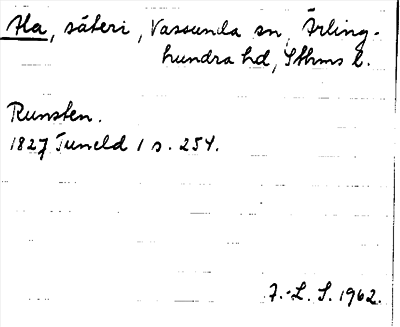 Åla, säteri, Vassunda sn, Ärling-
hundra hd, Sthms l.
Runsten.
1827 Tuneld 1 s. 254.
F.-L. S. 1962.